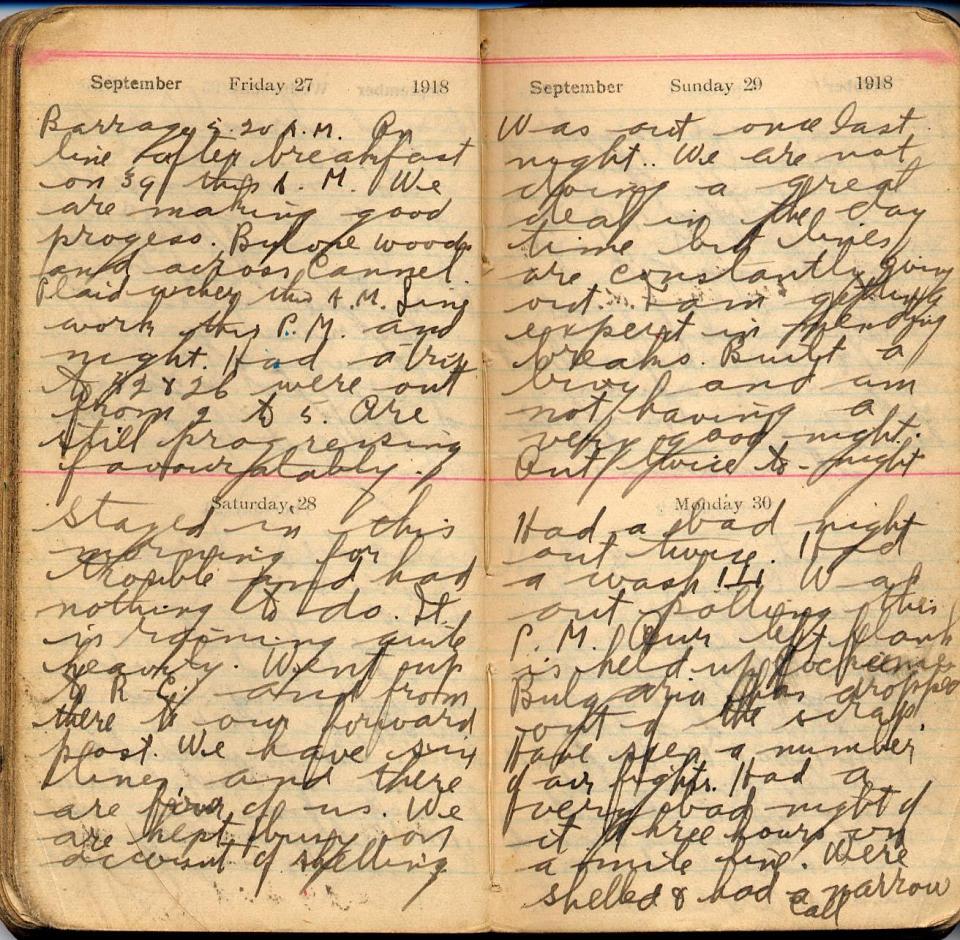 September Friday 27 1918
Barrage 5.20 A.M. On
line after breakfast
on 39 this A.M. We
are making good
progess. Bulone woods
and across Cannel.
Plaid this A.M. Line
work this P.M. and
night. Had a trip
to 42 & 26 were out
from 2 to 5. Are
still progressing
favourablably.
Saturday 28
Stayed in this
morning for
trouble and had
nothing to do. It
is raining quite
heavily. Went up
to R E. and from
there to our forward
post. We have six
lines and there
are four of us. We
are kept busy on
account of shelling
September Sunday 29 1918
Was out once last
night. We are not
doing a great
deal in the day
time but lines
are constantly going
out. I am getting
expert in mending
breaks. Built a
bivy and am
not having a
very good night.
Out twice to-night
Monday 30
Had a bad night
out twice. Had
a wash!!! Was
out polling this
P.M. Our left flank
is held up
Bulgaria has dropped
out of the scrap.
Have seen a number
of air fights. Had a
very bad night of
it three hours on
a mile line. Were
shelled & had a narrow
call